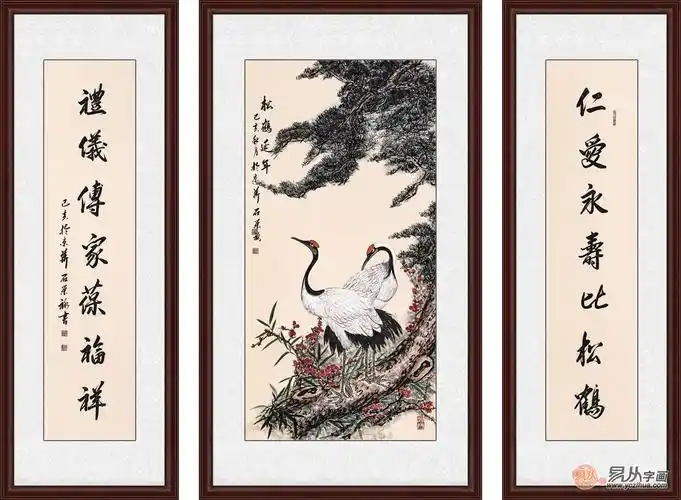 仁愛永壽比松鶴
松鶴延年
己亥秋月於京華石榮
禮儀傳家葆福祥
己亥於京華石榮祿書
易从字画
www.yczihua.com